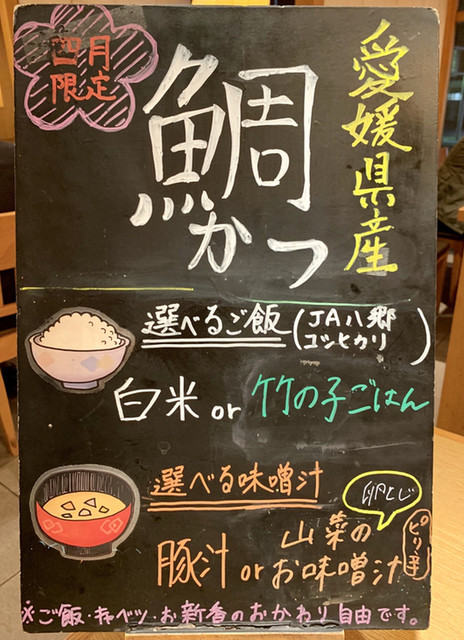 四月
限定
愛媛県産
鯛
かつ
選べるご飯
(JA八郷
コシヒカリ)
白米 or 竹の子ごはん
選べる味噌汁
卵とじ
豚汁 or 山菜の
お味噌汁
ピリ辛
※ご飯・キャベツ・お新香のおかわり自由です。